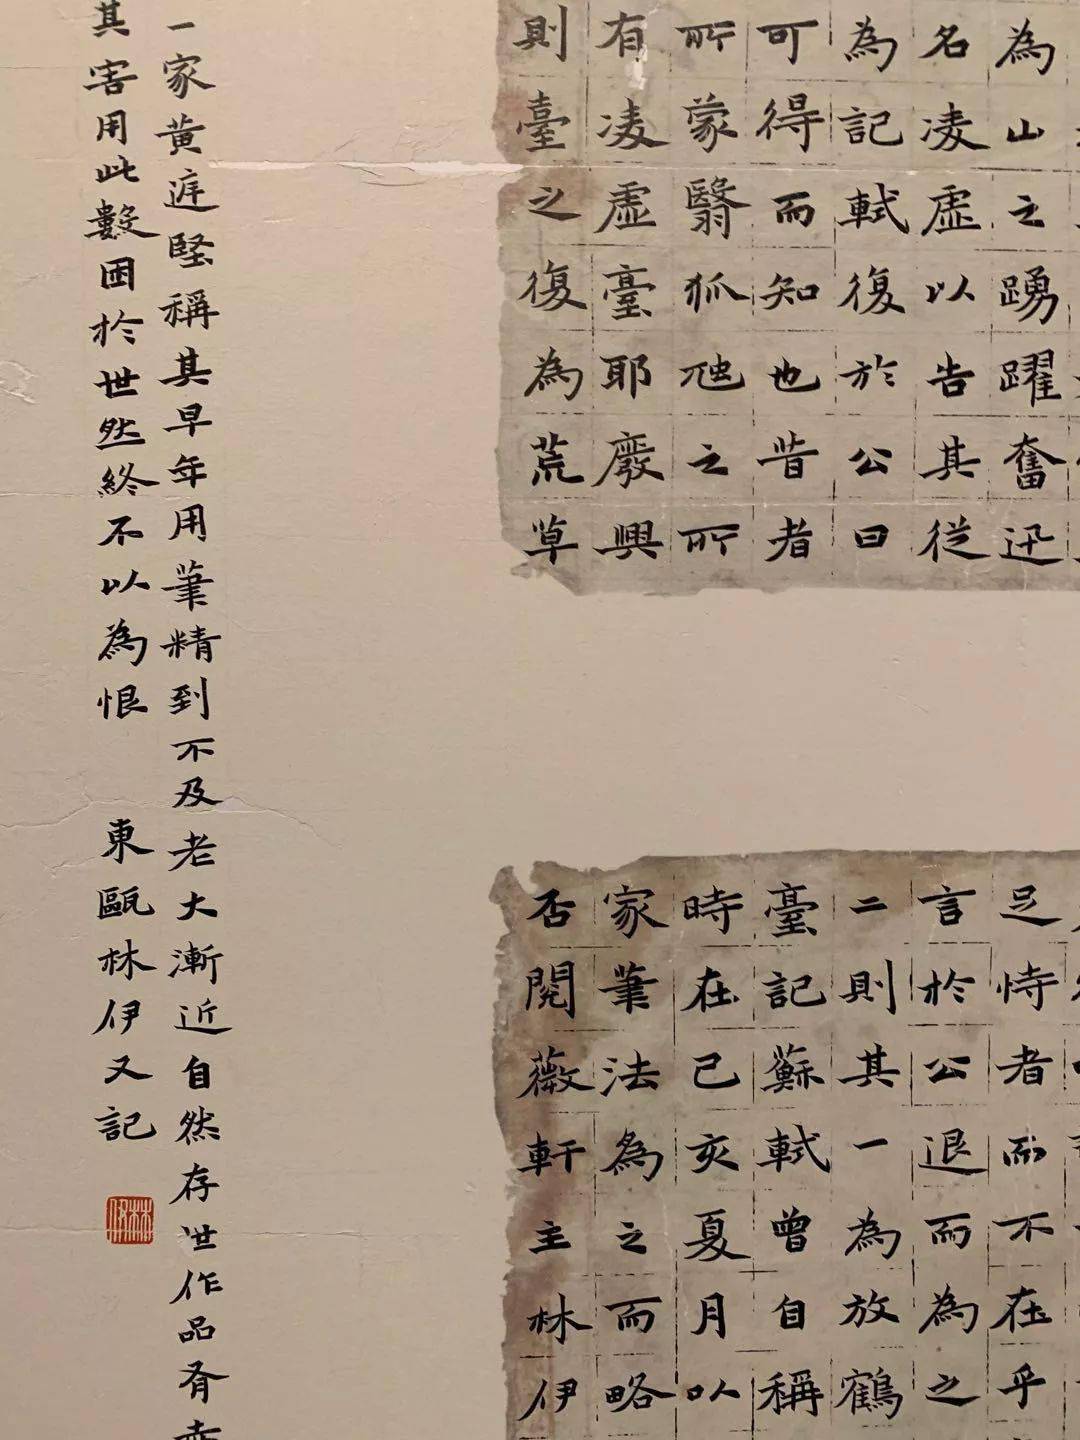 為山之踴躍奮迅
名凌虛以告其從
為記軾復於公曰
可得而知也昔者
所蒙翳狐虺之所
有凌虛臺耶廢興
則臺之復為荒草
足恃者而不在乎
言於公退而為之
二則其一為放鶴
臺記蘇軾曾自稱
時在己亥夏月以
家筆法為之而略
否閱薇軒主林伊
一家黃庭堅稱其早年用筆精到不及老大漸近自然存世作品有
其害用此數困於世然終不以為恨 東甌林伊又記
林伊